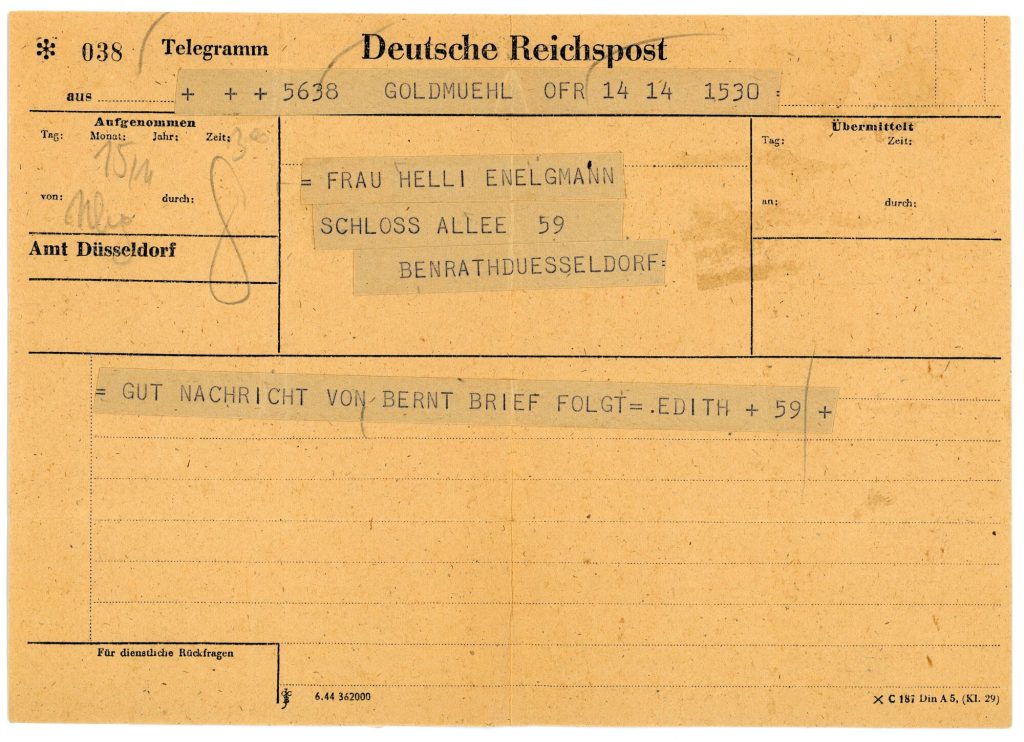 ✻ 038 Telegramm Deutsche Reichspost
aus + + + 5638 GOLDMUEHL OFR 14 14 1530 =
Aufgenommen
Tag: Monat: Jahr: Zeit:
15/11
8
von: durch:
Amt Düsseldorf
= FRAU HELLI ENELGMANN
SCHLOSS ALLEE 59
BENRATHDUESSELDORF=
Übermittelt
Tag: Zeit:
an: durch:
= GUT NACHRICHT VON BERNT BRIEF FOLGT= .EDITH + 59 +
Für dienstliche Rückfragen
6.44 362000
× C 187 Din A 5, (Kl. 29)